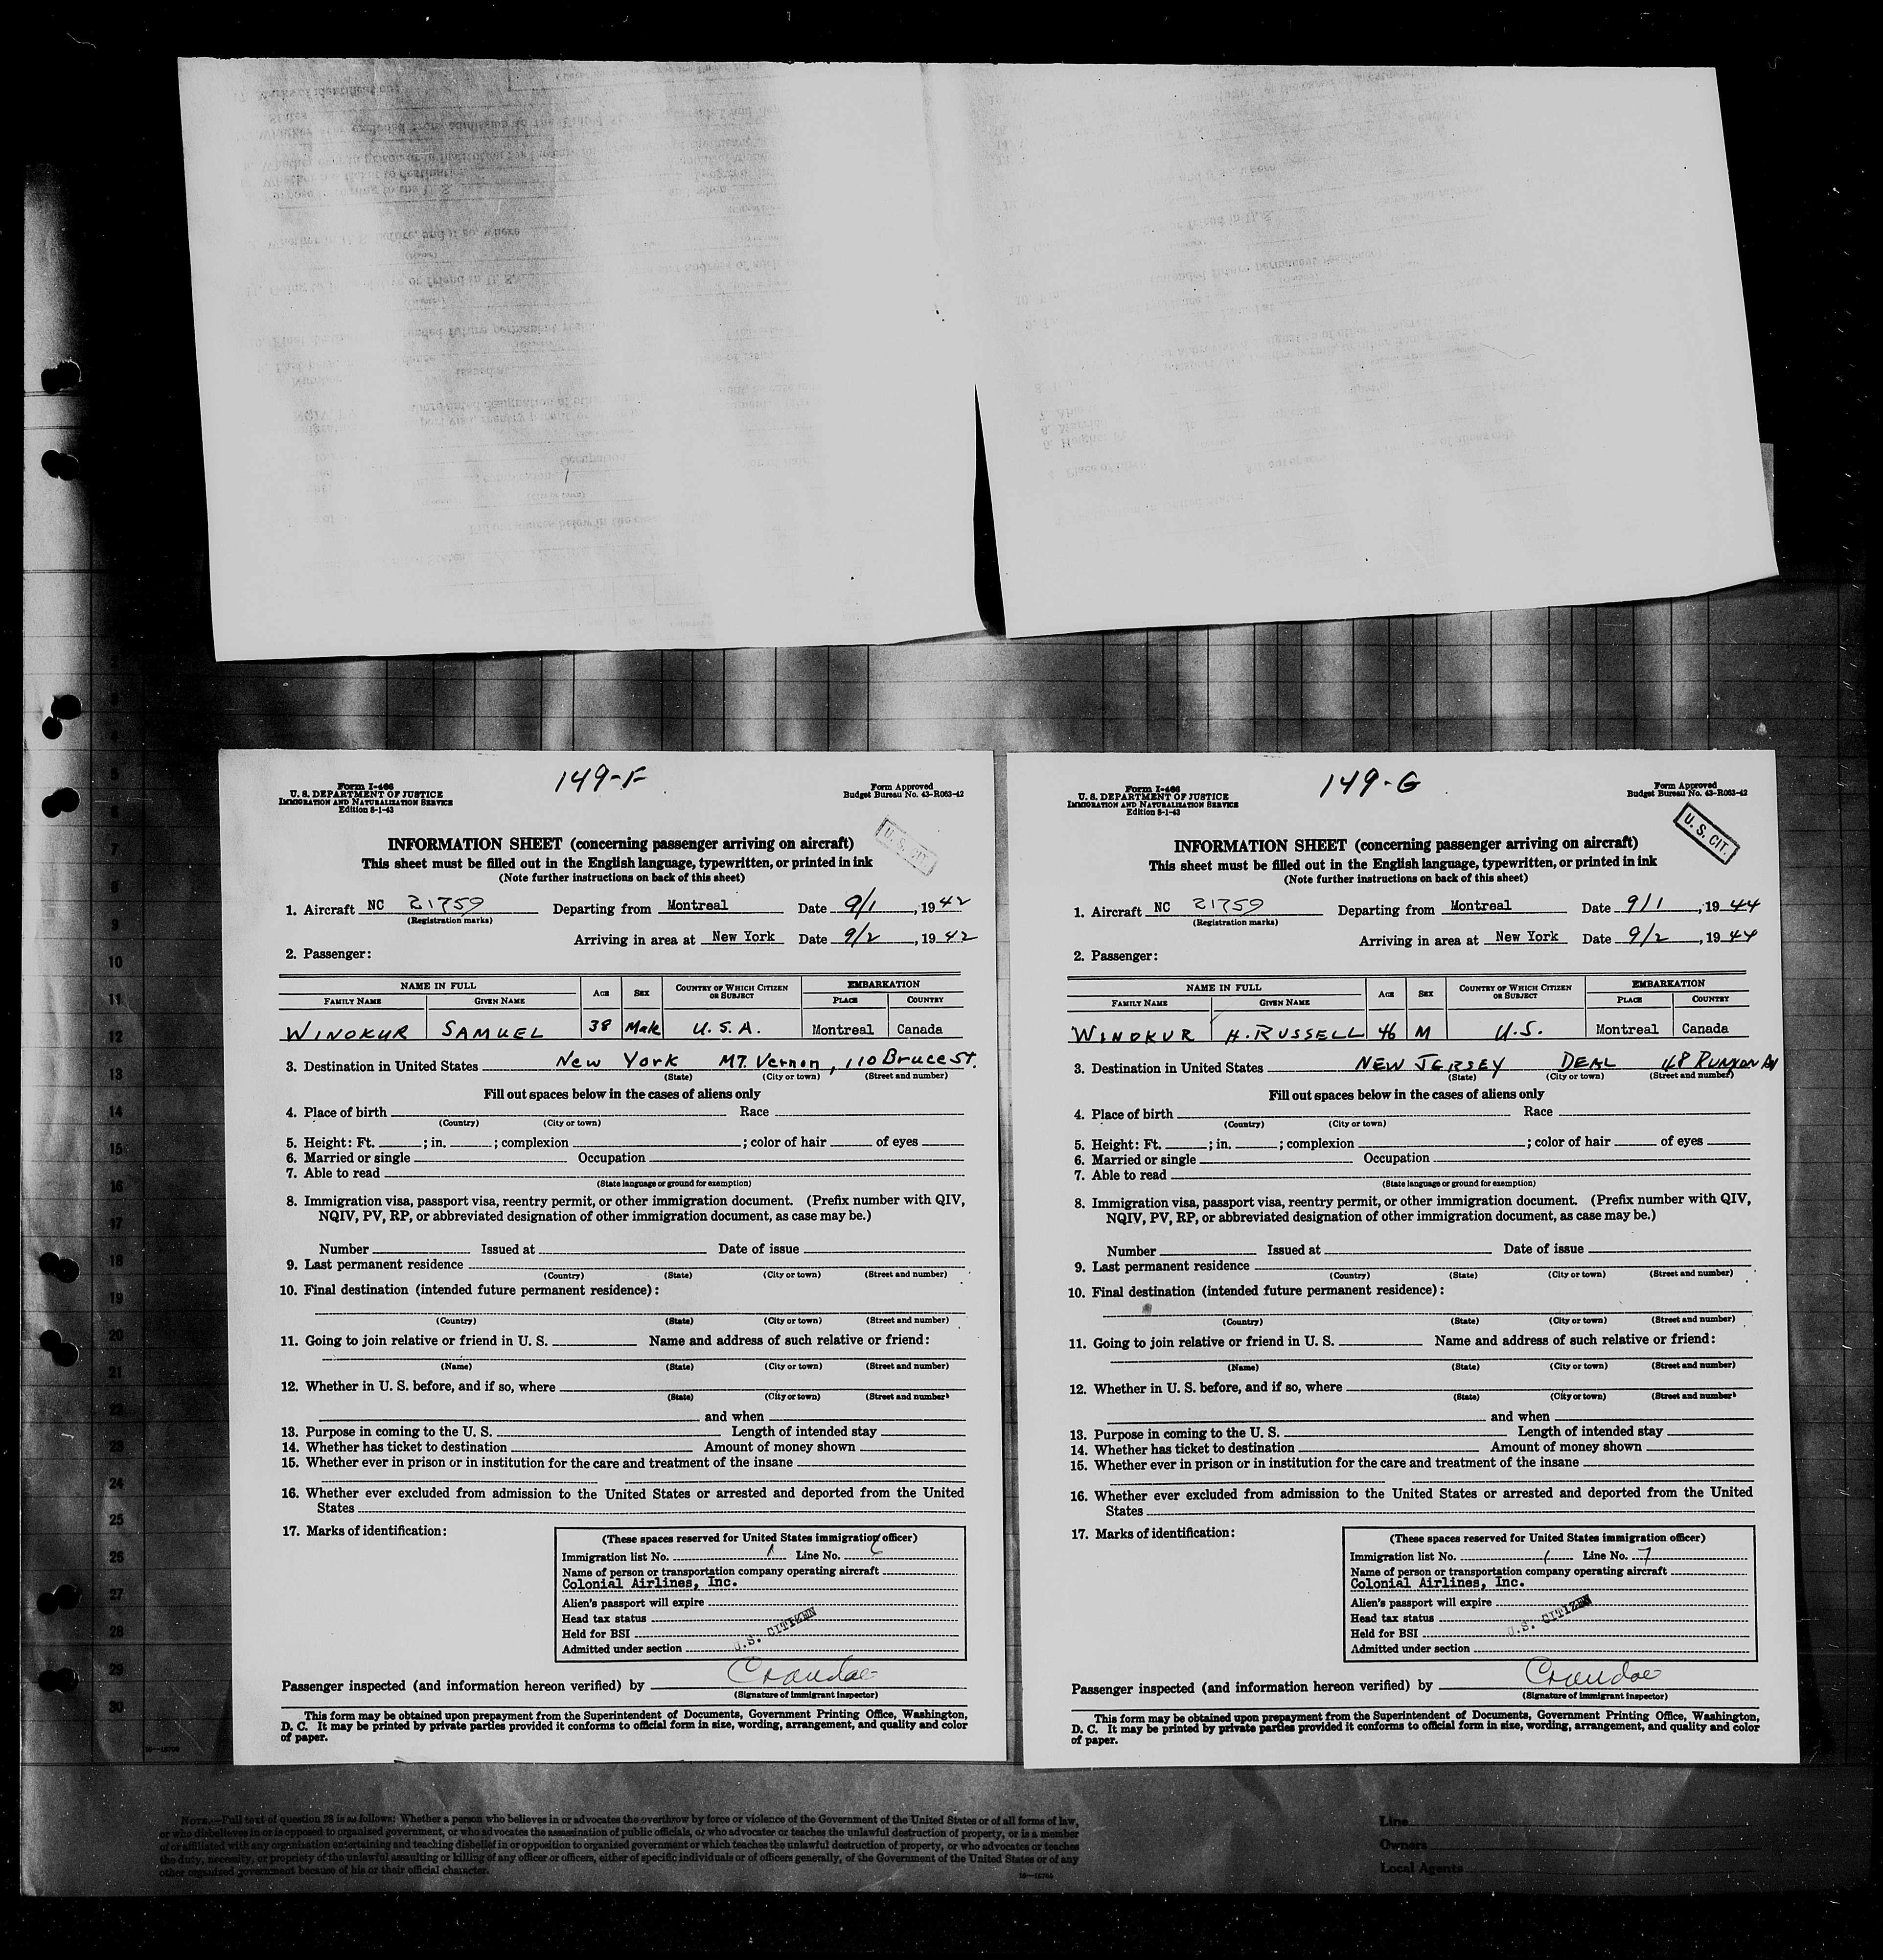 149-F
Form I-466
U. S. DEPARTMENT OF JUSTICE
IMMIGRATION AND NATURALIZATION SERVICE
Edition 8-1-43
Form Approved
Budget Bureau No. 43-R063-42
U. S. CIT.
INFORMATION SHEET (concerning passenger arriving on aircraft)
This sheet must be filled out in the English language, typewritten, or printed in ink
(Note further instructions on back of this sheet)
1. Aircraft NC 21759 Departing from Montreal Date 9/1, 1942
(Registration marks)
Arriving in area at New York Date 9/2, 1942
2. Passenger:
NAME IN FULL AGE SEX COUNTRY OF WHICH CITIZEN OR SUBJECT EMBARKATION
FAMILY NAME GIVEN NAME PLACE COUNTRY
WINOKUR SAMUEL 38 Male U.S.A. Montreal Canada
3. Destination in United States New York MT. Vernon, 110 Bruce St.
(State) (City or town) (Street and number)
Fill out spaces below in the cases of aliens only
4. Place of birth Race
(Country) (City or town)
5. Height: Ft. ; in. ; complexion ; color of hair of eyes
6. Married or single Occupation
7. Able to read
(State language or ground for exemption)
8. Immigration visa, passport visa, reentry permit, or other immigration document. (Prefix number with QIV,
NQIV, PV, RP, or abbreviated designation of other immigration document, as case may be.)
Number Issued at Date of issue
9. Last permanent residence
(Country) (State) (City or town) (Street and number)
10. Final destination (intended future permanent residence):
(Country) (State) (City or town) (Street and number)
11. Going to join relative or friend in U. S. Name and address of such relative or friend:
(Name) (State) (City or town) (Street and number)
12. Whether in U. S. before, and if so, where
(State) (City or town) (Street and number)
and when
13. Purpose in coming to the U. S. Length of intended stay
14. Whether has ticket to destination Amount of money shown
15. Whether ever in prison or in institution for the care and treatment of the insane
16. Whether ever excluded from admission to the United States or arrested and deported from the United
States
17. Marks of identification:
(These spaces reserved for United States immigration officer)
Immigration list No. 1 Line No. 6
Name of person or transportation company operating aircraft
Colonial Airlines, Inc.
Alien's passport will expire
Head tax status
Held for BSI
U.S. CITIZEN
Admitted under section
Passenger inspected (and information hereon verified) by
(Signature of immigrant inspector)
This form may be obtained upon prepayment from the Superintendent of Documents, Government Printing Office, Washington,
D. C. It may be printed by private parties provided it conforms to official form in size, wording, arrangement, and quality and color
of paper.
149-G
Form I-466
U. S. DEPARTMENT OF JUSTICE
IMMIGRATION AND NATURALIZATION SERVICE
Edition 8-1-43
Form Approved
Budget Bureau No. 43-R063-42
U. S. CIT.
INFORMATION SHEET (concerning passenger arriving on aircraft)
This sheet must be filled out in the English language, typewritten, or printed in ink
(Note further instructions on back of this sheet)
1. Aircraft NC 21759 Departing from Montreal Date 9/1, 1944
(Registration marks)
Arriving in area at New York Date 9/2, 1944
2. Passenger:
NAME IN FULL AGE SEX COUNTRY OF WHICH CITIZEN OR SUBJECT EMBARKATION
FAMILY NAME GIVEN NAME PLACE COUNTRY
WINOKUR H. RUSSELL 46 M U.S. Montreal Canada
3. Destination in United States NEW JERSEY DEAL
(State) (City or town) (Street and number)
Fill out spaces below in the cases of aliens only
4. Place of birth Race
(Country) (City or town)
5. Height: Ft. ; in. ; complexion ; color of hair of eyes
6. Married or single Occupation
7. Able to read
(State language or ground for exemption)
8. Immigration visa, passport visa, reentry permit, or other immigration document. (Prefix number with QIV,
NQIV, PV, RP, or abbreviated designation of other immigration document, as case may be.)
Number Issued at Date of issue
9. Last permanent residence
(Country) (State) (City or town) (Street and number)
10. Final destination (intended future permanent residence):
(Country) (State) (City or town) (Street and number)
11. Going to join relative or friend in U. S. Name and address of such relative or friend:
(Name) (State) (City or town) (Street and number)
12. Whether in U. S. before, and if so, where
(State) (City or town) (Street and number)
and when
13. Purpose in coming to the U. S. Length of intended stay
14. Whether has ticket to destination Amount of money shown
15. Whether ever in prison or in institution for the care and treatment of the insane
16. Whether ever excluded from admission to the United States or arrested and deported from the United
States
17. Marks of identification:
(These spaces reserved for United States immigration officer)
Immigration list No. 1 Line No. 7
Name of person or transportation company operating aircraft
Colonial Airlines, Inc.
Alien's passport will expire
Head tax status
Held for BSI
U.S. CITIZEN
Admitted under section
Passenger inspected (and information hereon verified) by
(Signature of immigrant inspector)
This form may be obtained upon prepayment from the Superintendent of Documents, Government Printing Office, Washington,
D. C. It may be printed by private parties provided it conforms to official form in size, wording, arrangement, and quality and color
of paper.
NOTE.—Full text of question 28 is as follows: Whether a person who believes in or advocates the overthrow by force or violence of the Government of the United States or of all forms of law,
or who disbelieves in or is opposed to organized government, or who advocates the assassination of public officials, or who advocates or teaches the unlawful destruction of property, or is a member
of or affiliated with any organization entertaining and teaching disbelief in or opposition to organized government or which teaches the unlawful destruction of property, or who advocates or teaches
the duty, necessity, or propriety of the unlawful assaulting or killing of any officer or officers, either of specific individuals or of officers generally, of the Government of the United States or of any
other organized government because of his or their official character.
Line
Owners
Local Agents